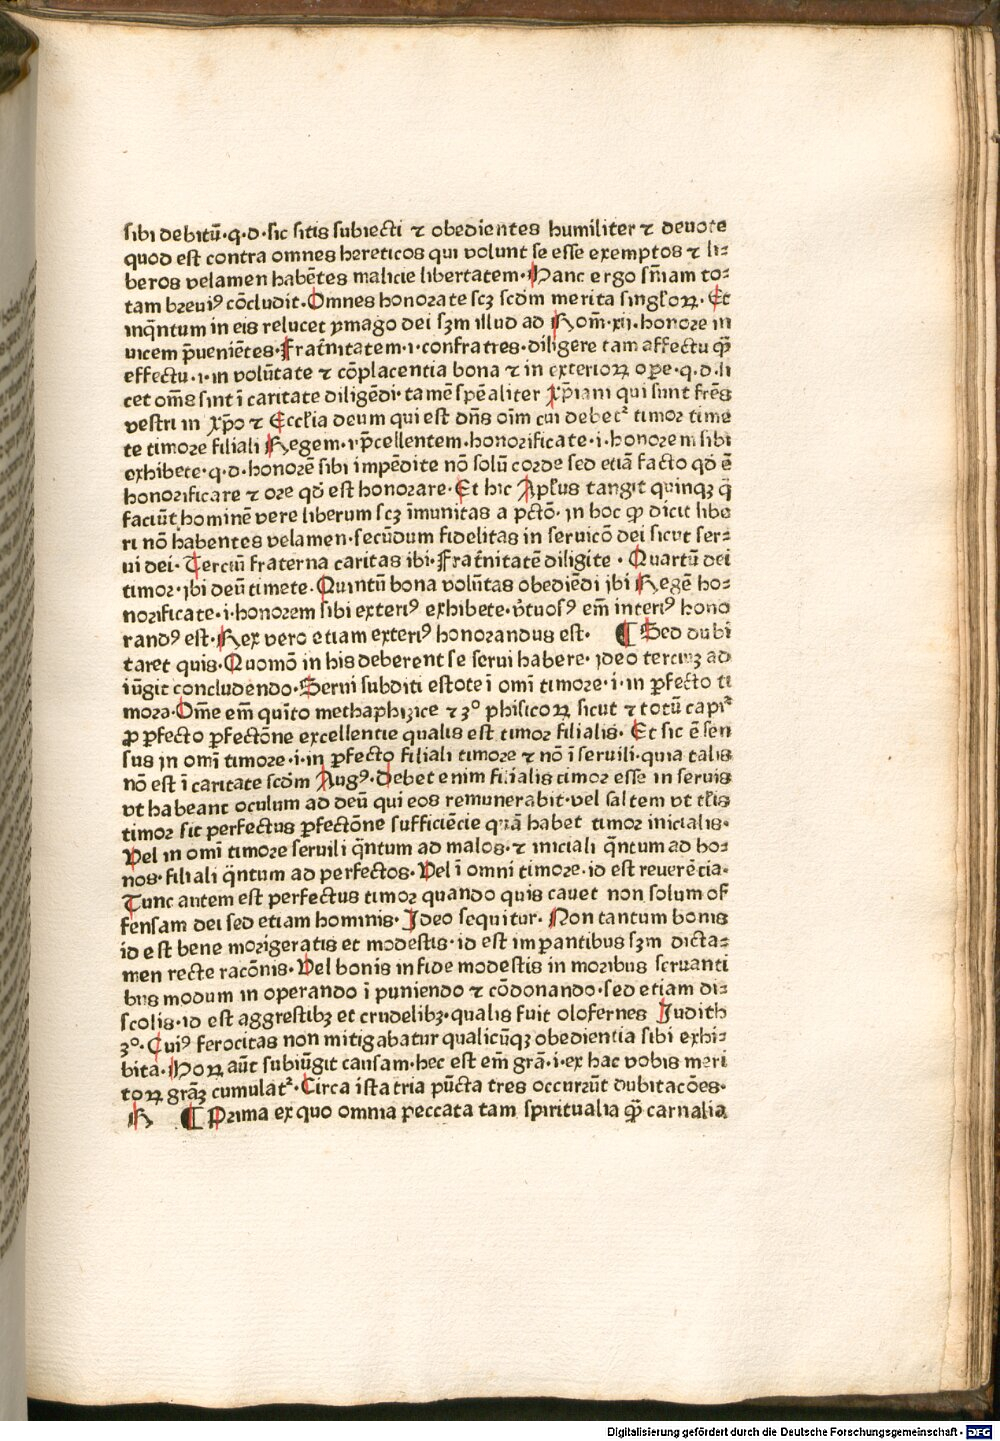 sibi debitū·q·d·sic sitis subiecti ⁊ obedientes humiliter ⁊ deuote
quod est contra omnes hereticos qui volunt se esse exemptos ⁊ li⸗
beros velamen habētes malicie libertatem·Hanc ergo sn̄iam to⸗
tam breuiꝰ cōcludit·Omnes honorate scꝫ scd̄m merita singl̓oꝝ·Et
inq̄ntum in eis relucet ymago dei sꝫm illud ad Rom̄·xij·honore in
uicem p̄ueniētes·Frat̄nitatem·i·confratres·diligere tam affectu qꝫ̄
effectu·i·in volūtate ⁊ cōplacentia bona ⁊ in exterioꝝ oꝑe·q·d·li
cet om̄s sint ī caritate diligēdi·tamē spēaliter xp̄iani qui sunt fr̄es
vestri in xp̄o ⁊ Eccl̓ia deum qui est dn̄s oīm cui debetᷣ timor time
te timore filiali Regem·i·p̄cellentem·honorificate·i·honorem sibi
exhibete·q·d·honorē sibi impēdite nō solū corde sed etiā facto qd̓ ē
honorificare ⁊ ore qd̓ est honorare·Et hic Apl̓us tangit quinqꝫ q̄
faciūt hominē vere liberum scꝫ īmunitas a pctō·in hoc ꝙ dicit libe
ri nō habentes velamen·secūdum fidelitas in seruicō dei sicut ser⸗
ui dei·Terciū fraterna caritas ibi·Frat̄nitatē diligite·Quartū dei
timor·ibi deū timete·Quintū bona volūtas obediēdi ibi Regē ho⸗
norificate·i·honorem sibi exteriꝰ exhibete·v̓tuosꝰ em̄ interiꝰ hono
randꝰ est·Rex vero etiam exteriꝰ honorandus est· ¶ Sed dubi
taret quis·Quomō in his deberent se serui habere·ideo terciuꝫ ad
iūgit concludendo·Serui subditi estote ī omī timore·i·in ꝑfecto ti
more·Om̄e em̄ quīto methaphizice ⁊ 3° phisicoꝝ sicut ⁊ totū capiᷣ
ꝓ ꝑfecto ꝑfectōne excellentie qualis est timor filialis·Et sic ē sen
sus in omī timore·i·in ꝑfecto filiali timore ⁊ nō ī seruili·quia talis
nō est ī caritate scd̄m Augꝰ·Debet enim filialis timor esse in seruis
vt habeant oculum ad deū qui eos remunerabit·vel saltem vt tl̓is
timor sit perfectus ꝑfectōne sufficiēcie quā habet timor inicialis·
Vel in omī timore seruili q̄ntum ad malos·⁊ iniciali q̄ntum ad bo⸗
nos·filiali q̄ntum ad perfectos·Vel ī omni timore·id est reuerētia·
Tunc autem est perfectus timor quando quis cauet non solum of
fensam dei sed etiam hominis·Ideo sequitur·Non tantum bonis
id est bene morigeratis et modestis·id est imꝑantibus sꝫm dicta⸗
men recte racōnis·Vel bonis in fide modestis in moribus seruanti
bus modum in operando ī puniendo ⁊ cōdonando·sed etiam di⸗
scolis·id est aggrestibꝫ et crudelibꝫ·qualis fuit olofernes Judith
3°·Cuiꝰ ferocitas non mitigabatur qualicūqꝫ obedientia sibi exhi⸗
bita·Hoꝝ aūt subiūgit causam·hec est em̄ grā·i·ex hac vobis meri
toꝝ grāꝫ cumulatᷣ·Circa ista tria pūcta tres occurrūt dubitacōes·
R ¶ Prima ex quo omnia peccata tam spiritualia qꝫ̄ carnalia
Digitalisierung gefördert durch die Deutsche Forschungsgemeinschaft - DFG